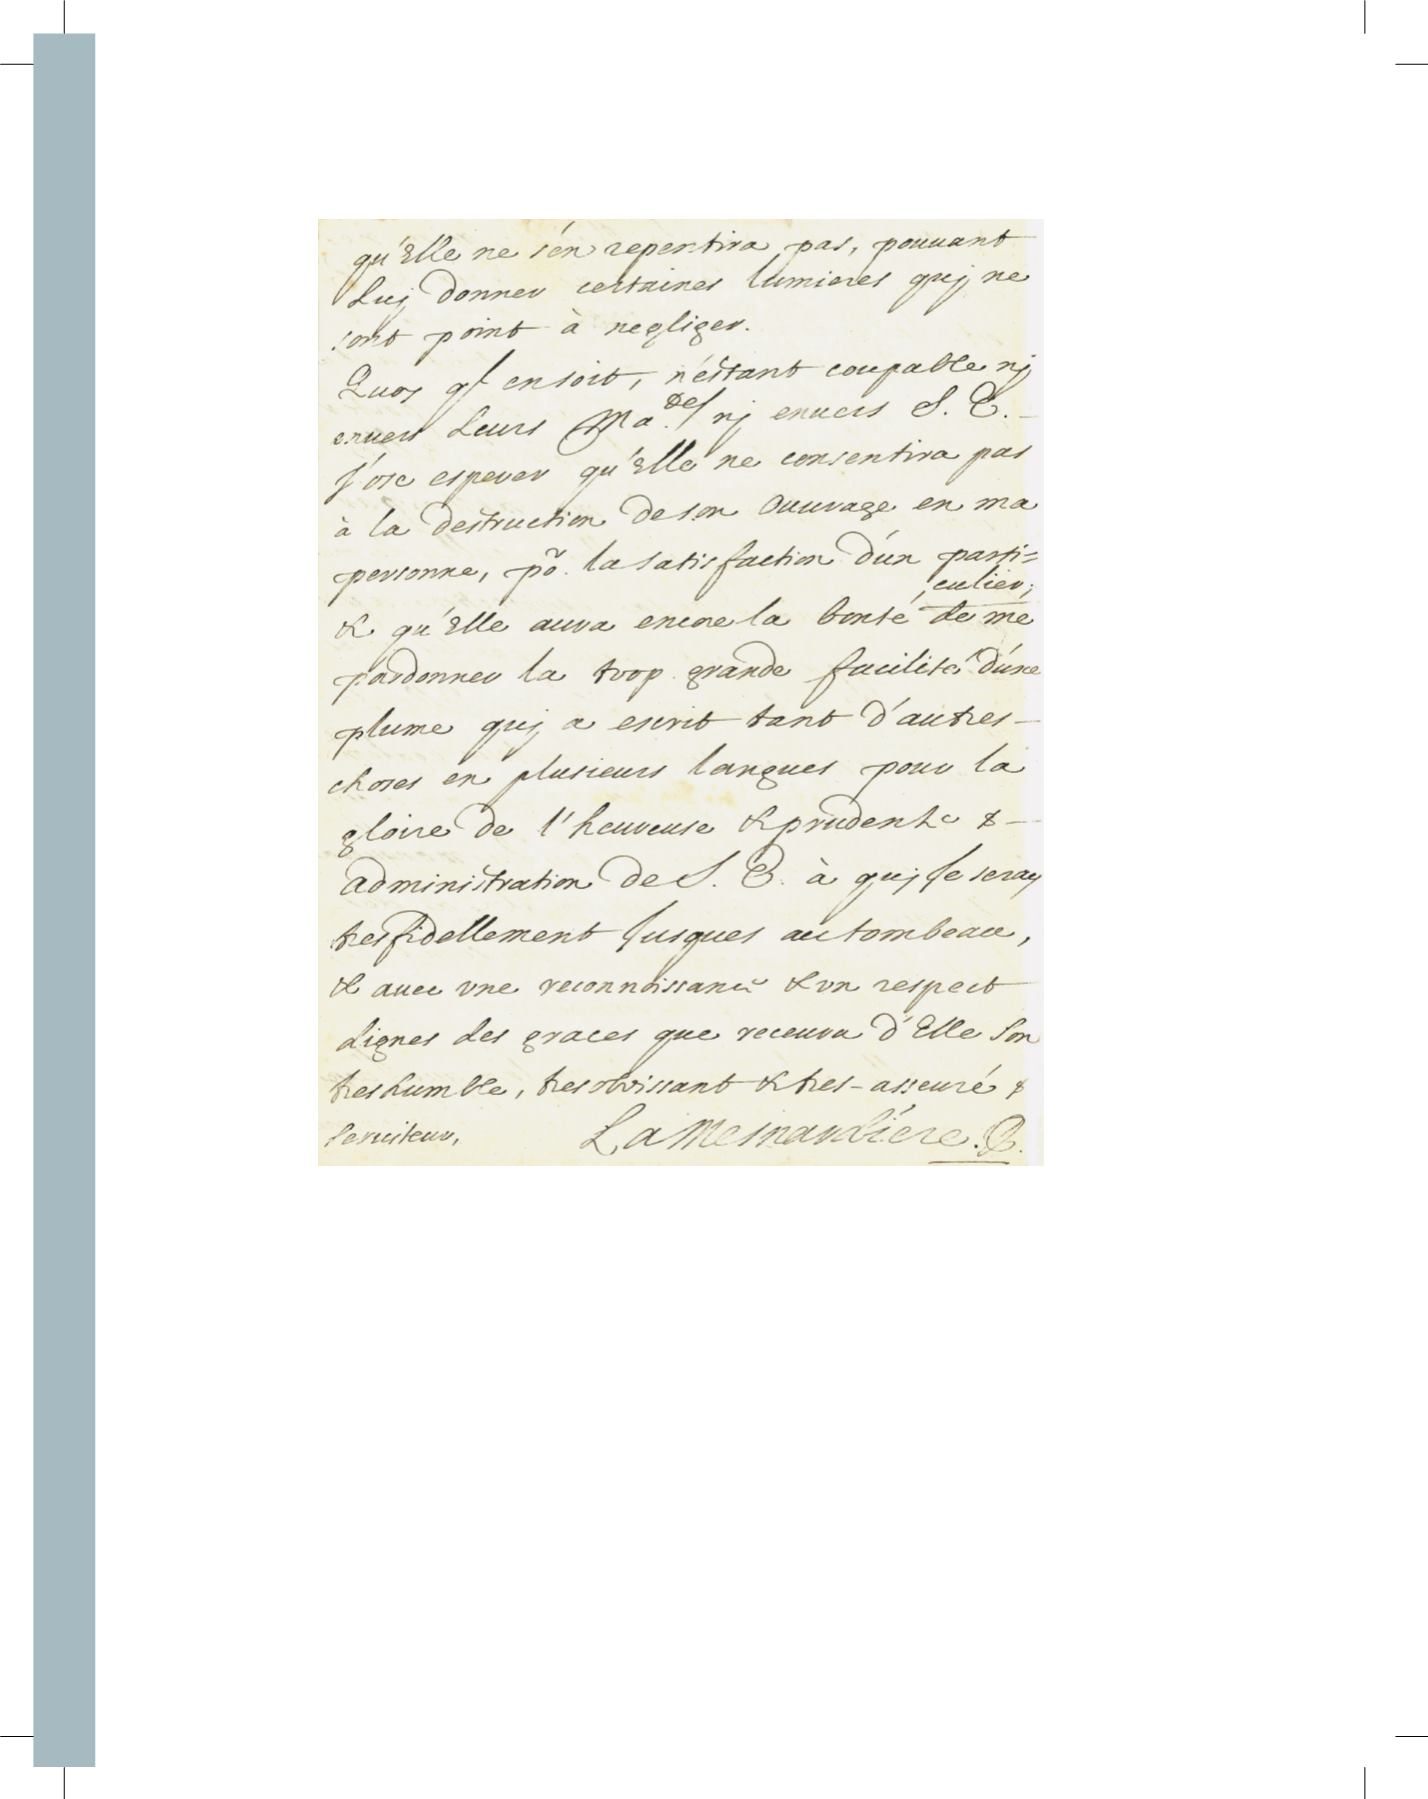 qu'Elle ne s'en repentira pas, pouuant
Luj donner certaines lumieres quj ne
sont point à negliger.
Quoy qI en soit, n'éstant coupable nj
enuers Leurs Ma.tes nj enuers S. E.
J'ose esperer qu'Elle ne consentira pas
à la destruction de son Ouuvrage en ma
personne, po.r la satisfaction d'un parti=
culier;
& qu'Elle aura encore la bonté de me
pardonner la trop grande facilité d'une
plume quj a escrit tant d'autres
choses en plusieurs langues pour la
gloire de l'heureuse & prudente &
administration de S. E. à quj Je seray
tresfidellement Jusques au tombeau,
& auec vne reconnoissance & vn respect
dignes des graces que receura d'Elle Son
treshumble, tresobéissant & tres-asseuré &
Seruiteur, La Mesnardiére.